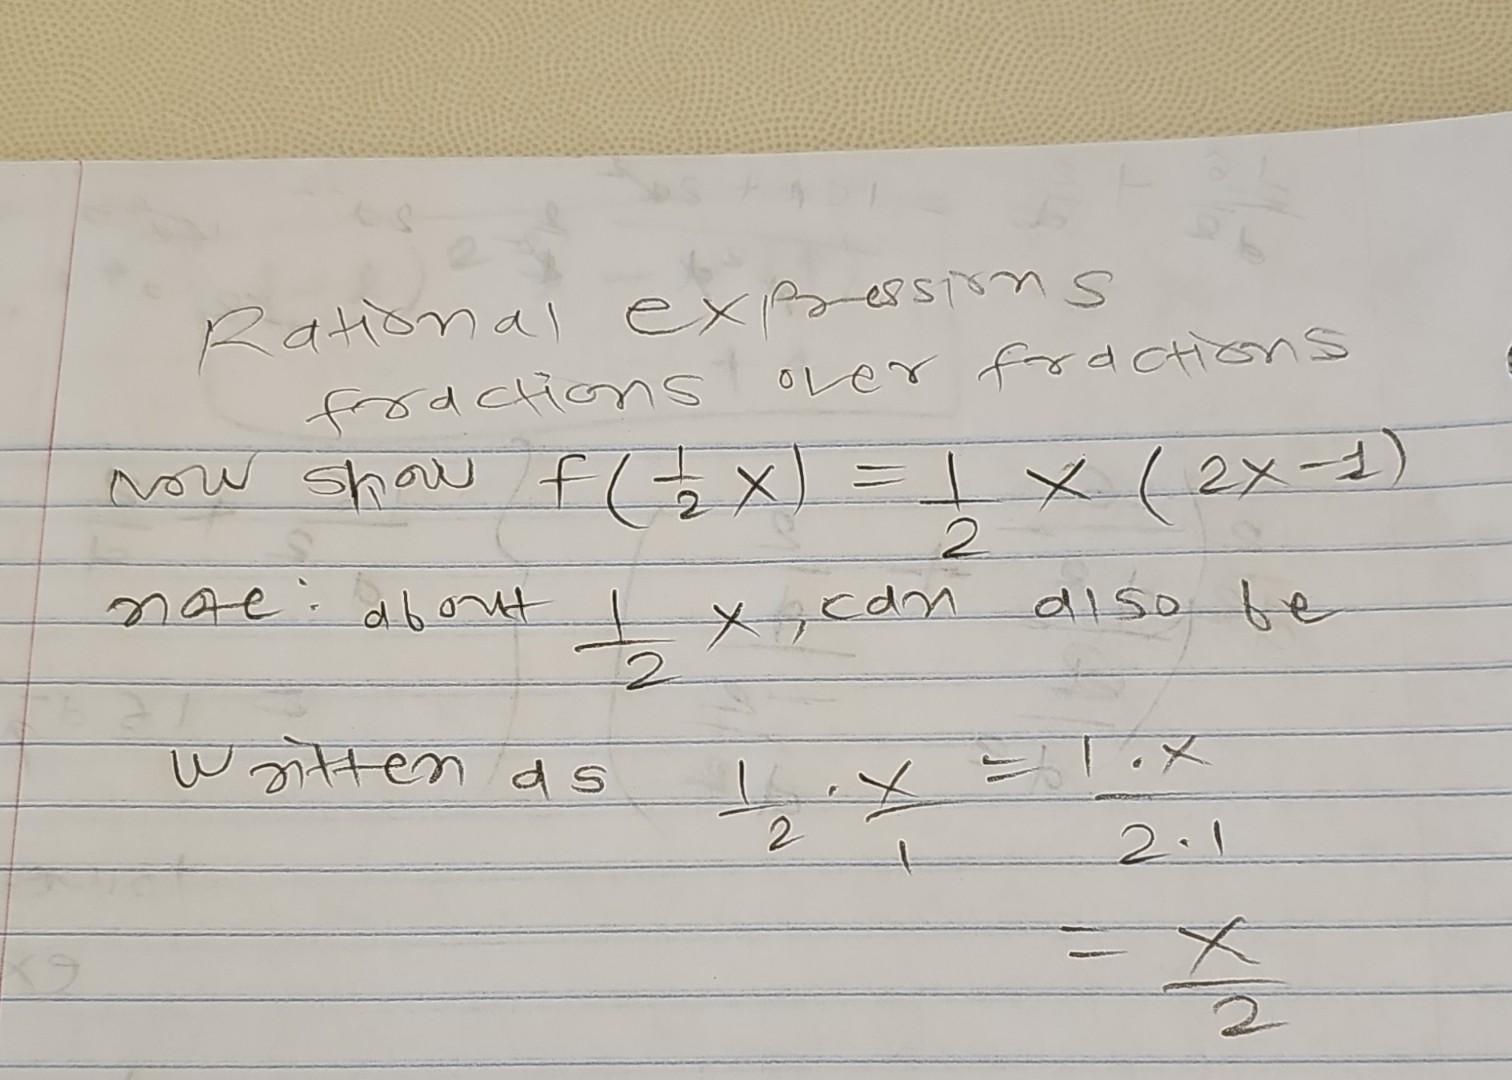 Rational expressions
fractions over fractions
now show f(1/2 x) = 1/2 x (2x-1)
note: about 1/2 x, can also be
written as 1/2 · x/1 = 1·x/2·1
= x/2